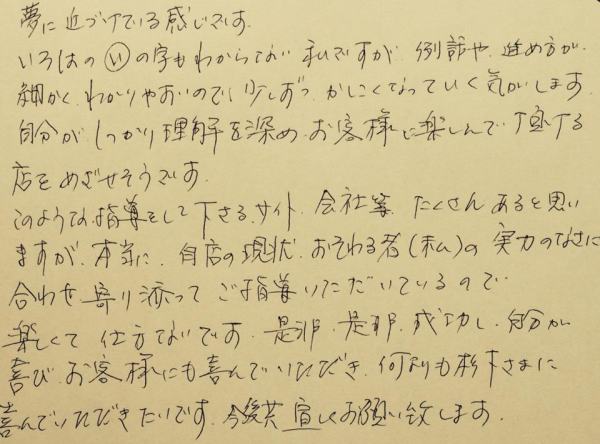 夢に近づけている感じです。
いろはの い の字もわからない私ですが、例話や進め方が、
細かく、わかりやすいので、少しずつ、かしこくなっていく気がします。
自分がしっかり理解を深め、お客様に楽しんで頂ける
店をめざせそうです。
このような指導をして下さるサイト、会社等、たくさんあると思い
ますが、本当に、自店の現状、おそわる者(私)の実力のなさに
合わせ、寄り添ってご指導いただいているので、
楽しくて仕方ないです。是非、是非、成功し、自分が
喜び、お客様にも喜んでいただき、何よりも杉下さまに
喜んでいただきたいです。今後共宜しくお願い致します。